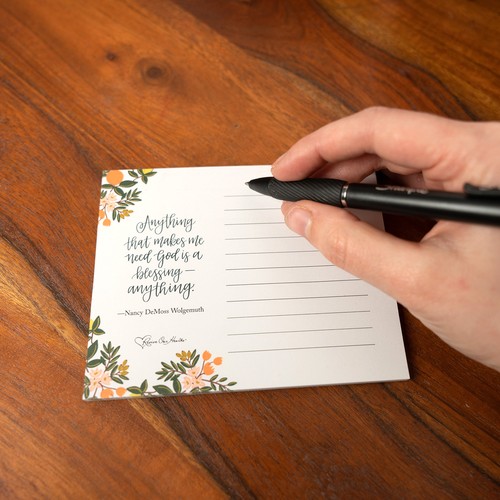 Anything
that makes me
need God is a
blessing—
anything.
—Nancy DeMoss Wolgemuth
Revive Our Hearts